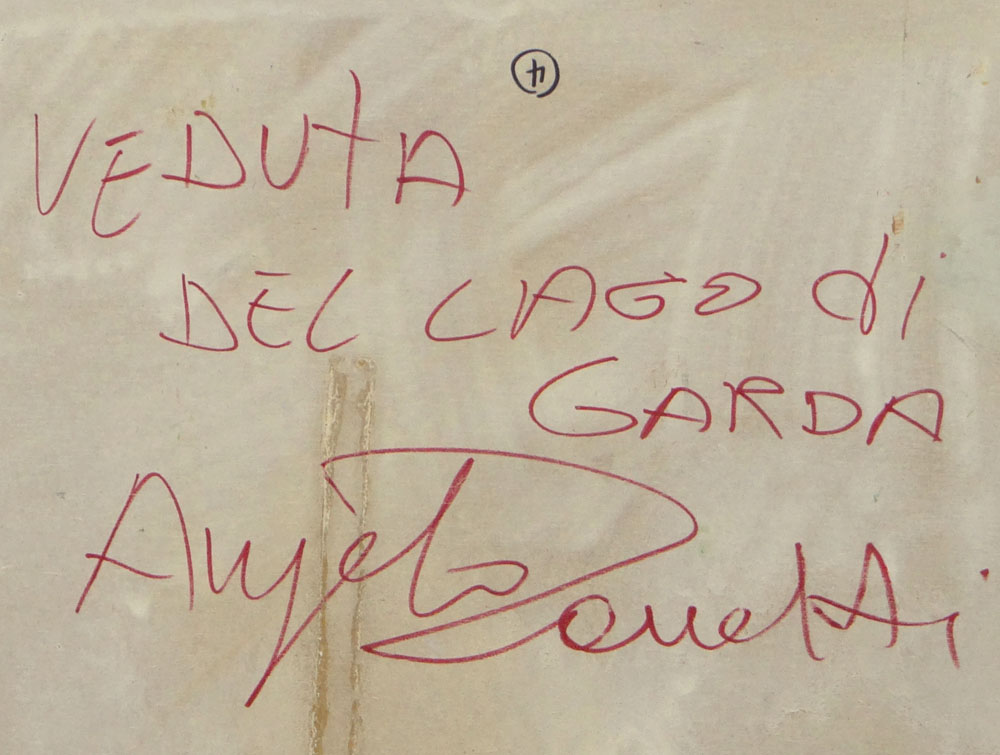 4
VEDUTA
DEL LAGO di
GARDA
Angelo Donetti